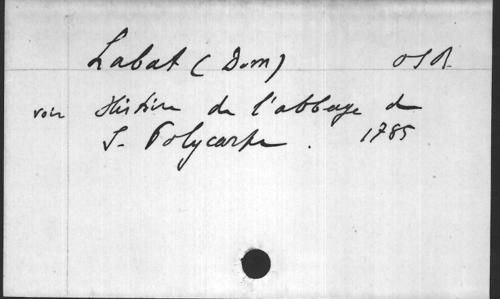 Labat (Dom) OSB.
voir Histoire de l'abbaye de
S. Polycarpe. 1785